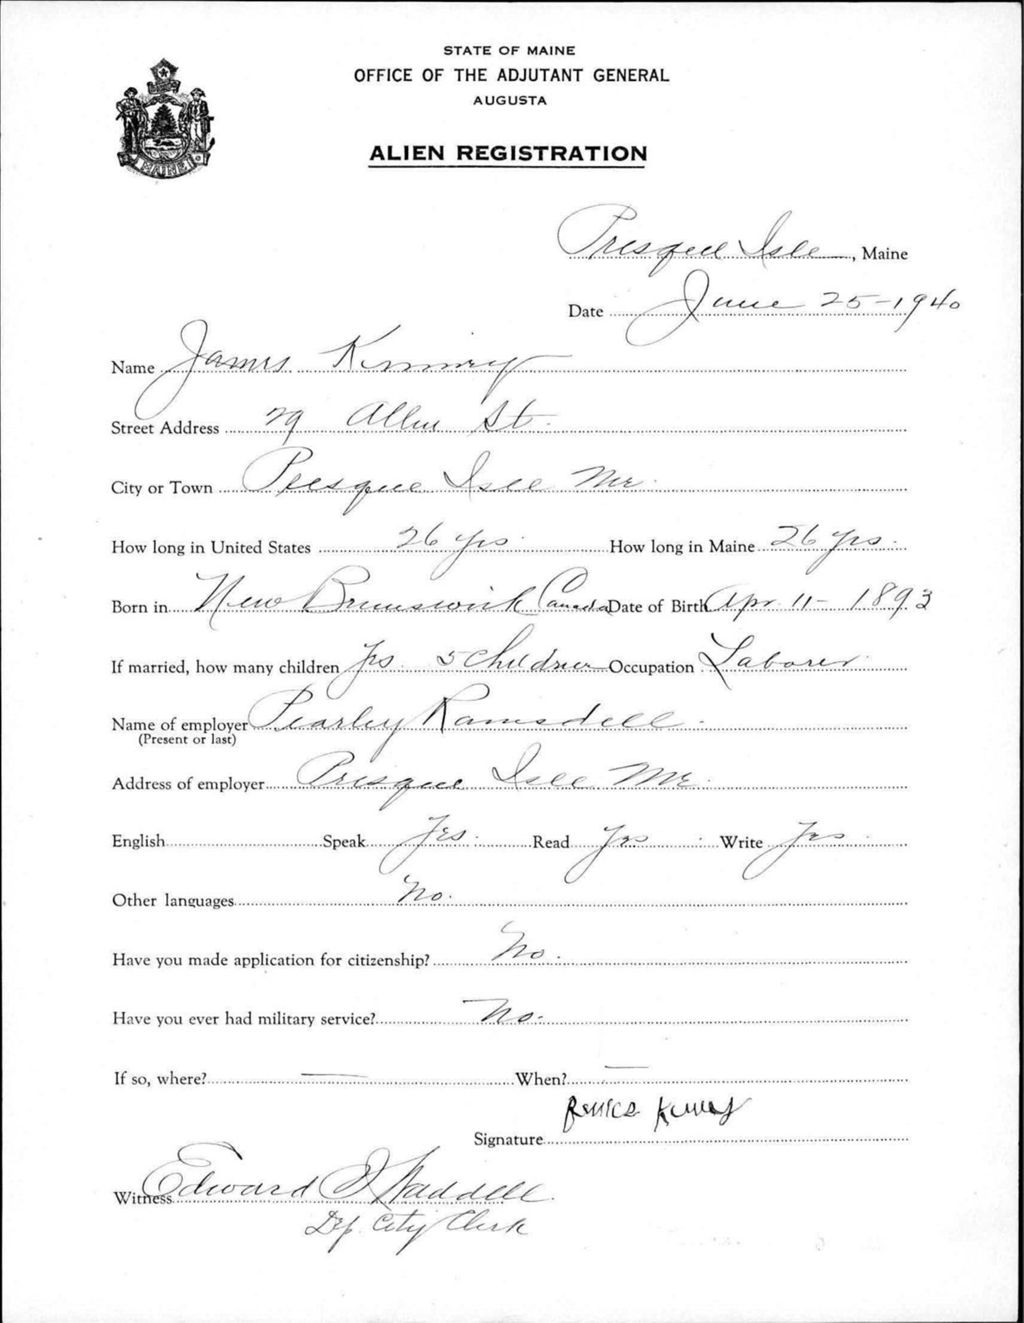 STATE OF MAINE
OFFICE OF THE ADJUTANT GENERAL
AUGUSTA
ALIEN REGISTRATION
MAINE
Presque Isle, Maine
Date June 25-1940
Name James Kinney
Street Address 29 Allen St.
City or Town Presque Isle Me.
How long in United States 26 yrs. How long in Maine 26 yrs.
Born in New Brunswick Canada Date of Birth Apr 11- 1893
If married, how many children yes 5 Children Occupation Laborer
Name of employer Pearley Ramsdell
(Present or last)
Address of employer Presque Isle Me.
English Speak Yes. Read Yes Write Yes
Other languages No.
Have you made application for citizenship? No.
Have you ever had military service? No.
If so, where? — When? —
Signature
Witness Edward Waddell.
Dep. City Clerk